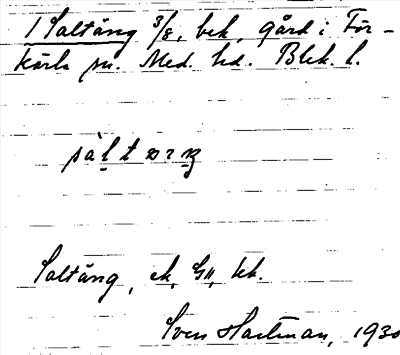 1 Saltäng 3/8, bek. gård i För-
kärla sn. Med. hd. Blek. l.
Saltäng, ek, GII, kk.
Sven Hartman, 1930